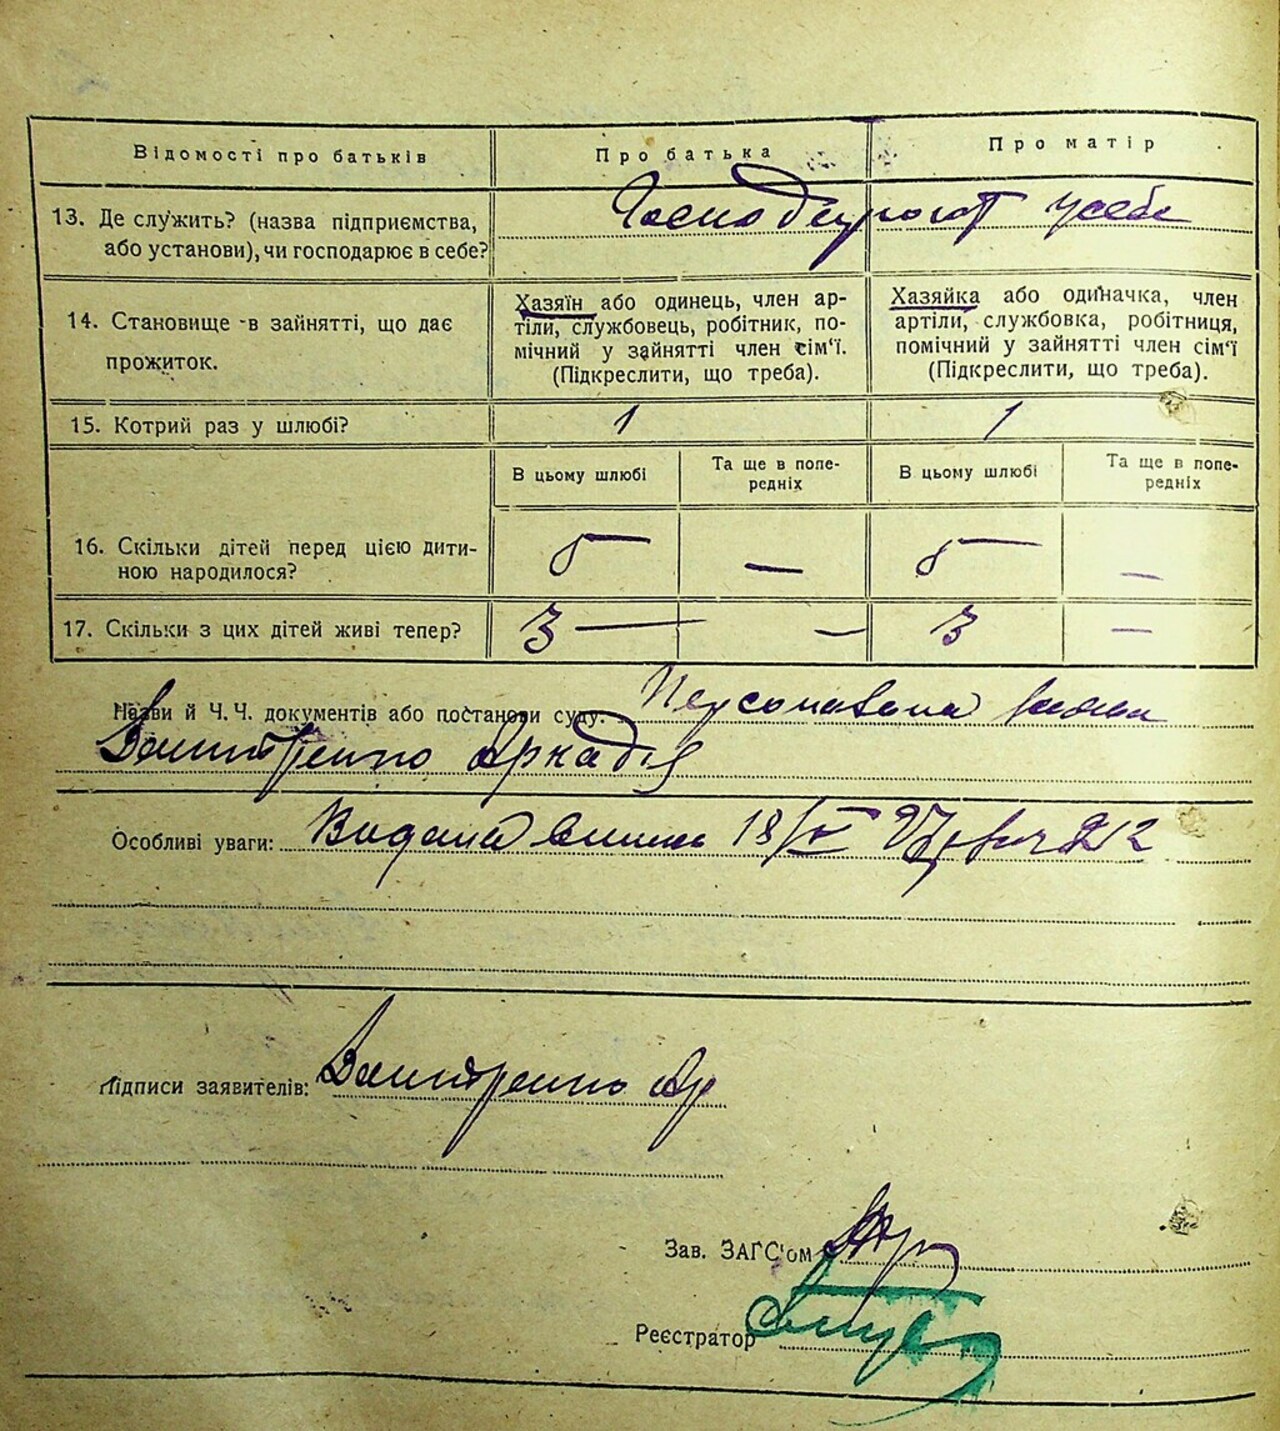 Відомості про батьків Про батька Про матір
13. Де служить? (назва підприємства, або установи), чи господарює в себе? Господарюют у себе
14. Становище в зайнятті, що дає прожиток.
Хазяїн або одинець, член ар-
тіли, службовець, робітник, по-
мічний у зайнятті член сім'ї.
(Підкреслити, що треба).
Хазяйка або одиначка, член
артіли, службовка, робітниця,
помічний у зайнятті член сім'ї
(Підкреслити, що треба).
15. Котрий раз у шлюбі? 1 1
В цьому шлюбі Та ще в попе-
редніх В цьому шлюбі Та ще в попе-
редніх
16. Скільки дітей перед цією дити-
ною народилося? 5 — 5 —
17. Скільки з цих дітей живі тепер? 3 — 3 —
Назви й Ч. Ч. документів або постанови суду:
Аркадія
Особливі уваги: Видана 18/
Підписи заявителів:
Зав. ЗАГС'ом
Реєстратор